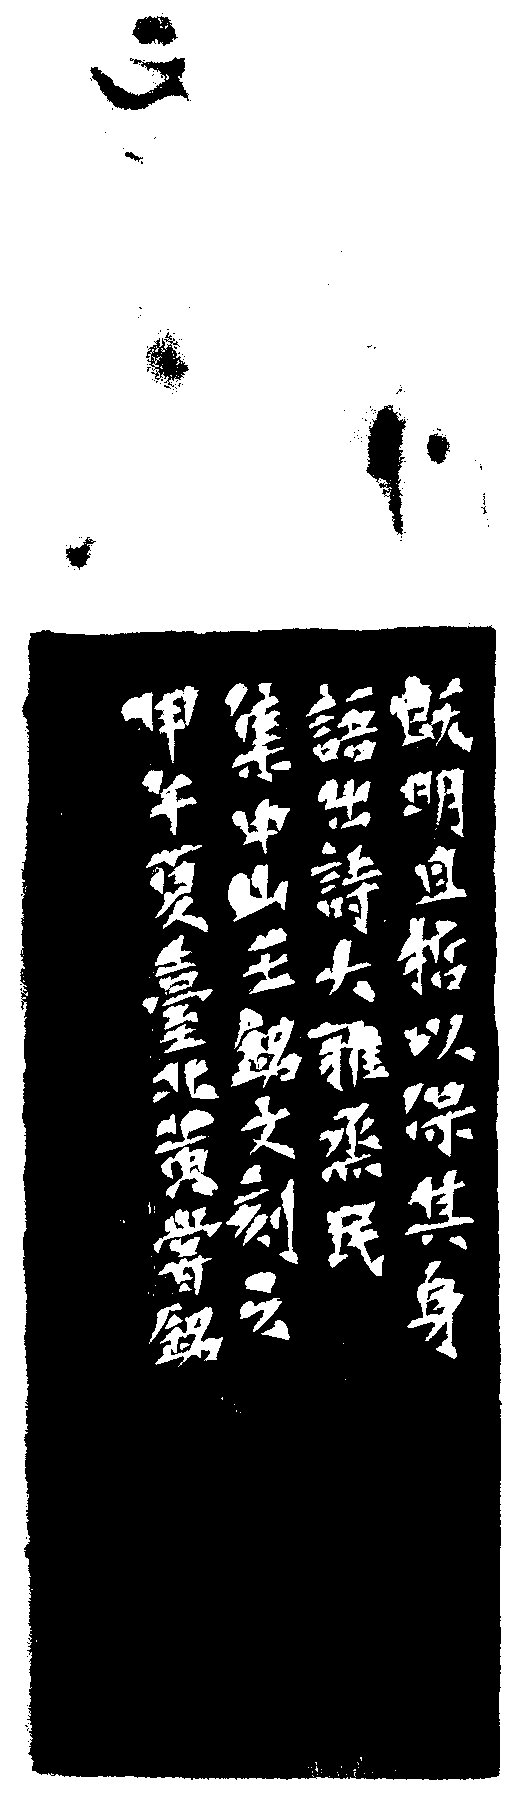 既明且哲以保其身
語出詩大雅烝民
集中山王銘文刻之
甲午夏臺北黃嘗銘